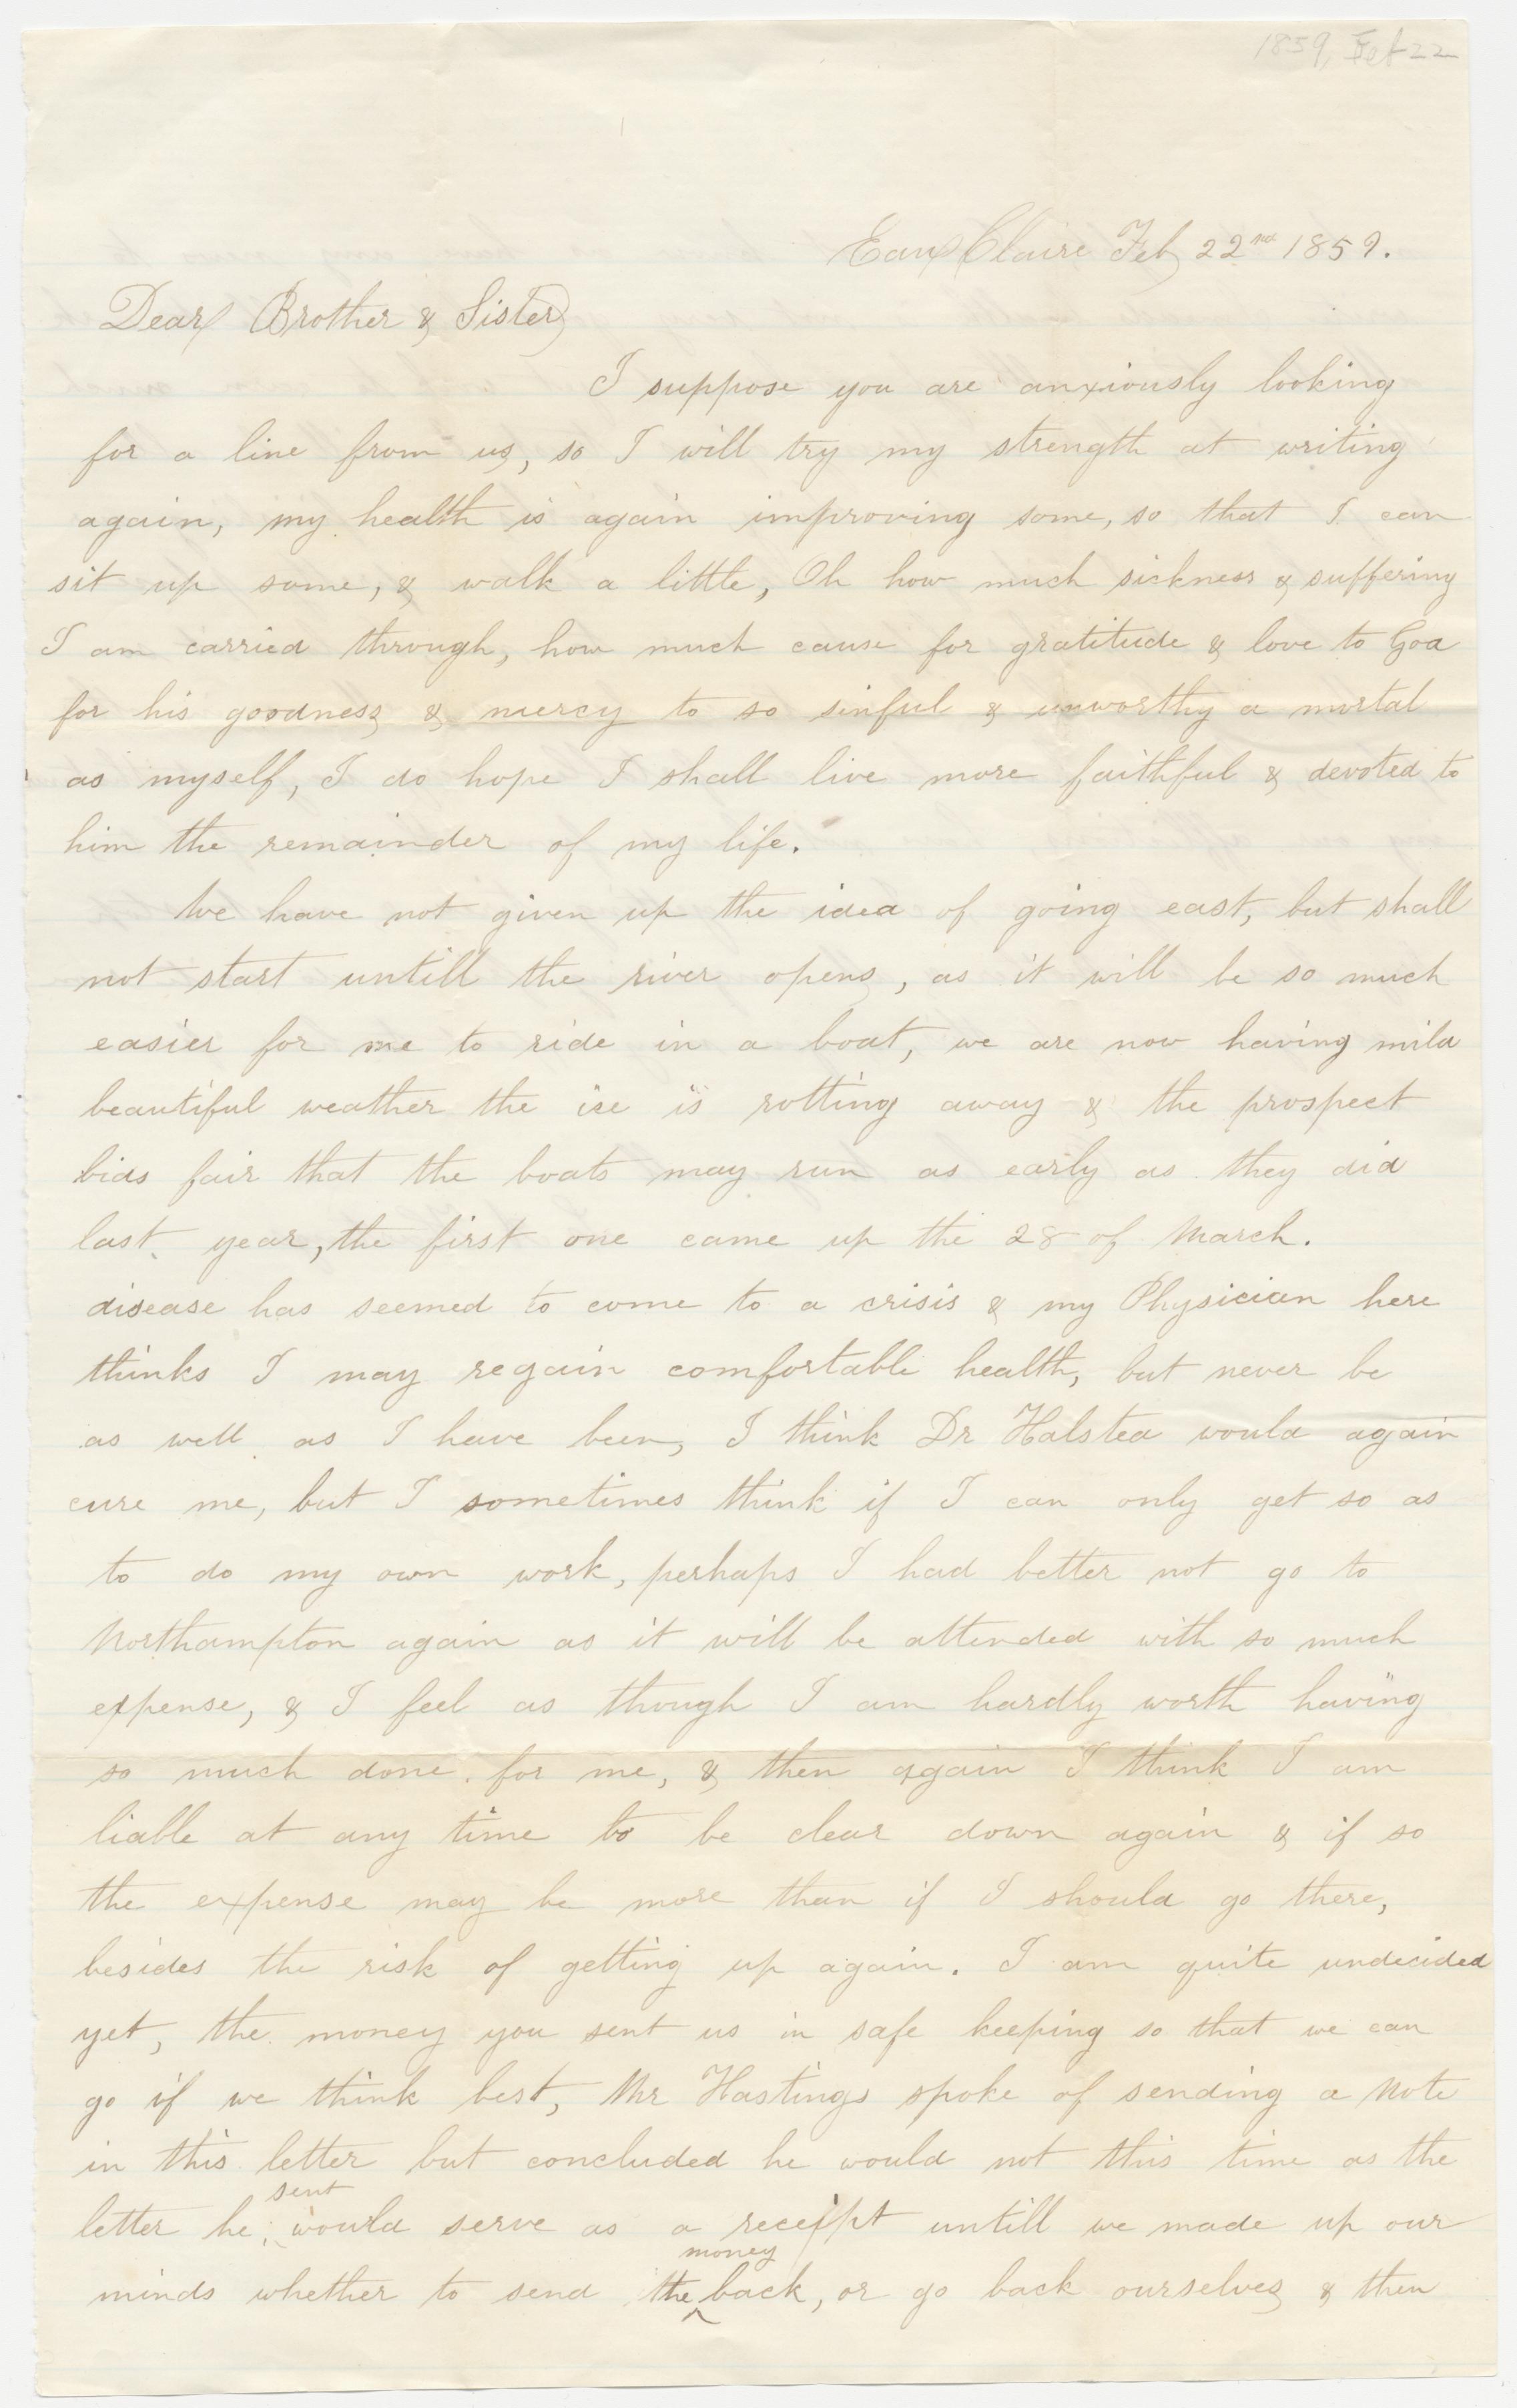 1859, Feb 22
Eau Claire Feb 22nd 1859.
Dear Brother & Sister
I suppose you are anxiously looking
for a line from us, so I will try my strength at writing
again, my health is again improving some, so that I can
sit up some, & walk a little, Oh how much sickness & suffering
I am carried through, how much cause for gratitude & love to God
for his goodness & mercy to so sinful & unworthy a mortal
as myself, I do hope I shall live more faithful & devoted to
him the remainder of my life.
We have not given up the idea of going east, but shall
not start untill the river opens, as it will be so much
easier for me to ride in a boat, we are now having mild
beautiful weather the ice is rotting away & the prospect
bids fair that the boats may run as early as they did
last year, the first one came up the 28 of March.
disease has seemed to come to a crisis & my Physician here
thinks I may regain comfortable health, but never be
as well as I have been, I think Dr Halsted would again
cure me, but I sometimes think if I can only get so as
to do my own work, perhaps I had better not go to
Northampton again as it will be attended with so much
expense, & I feel as though I am hardly worth having
so much done for me, & then again I think I am
liable at any time to be clear down again & if so
the expense may be more than if I should go there,
besides the risk of getting up again. I am quite undecided
yet, the money you sent us in safe keeping so that we can
go if we think best, Mr Hastings spoke of sending a Note
in this letter but concluded he would not this time as the
letter he sent would serve as a receipt untill we made up our
minds whether to send the money back, or go back ourselves & then